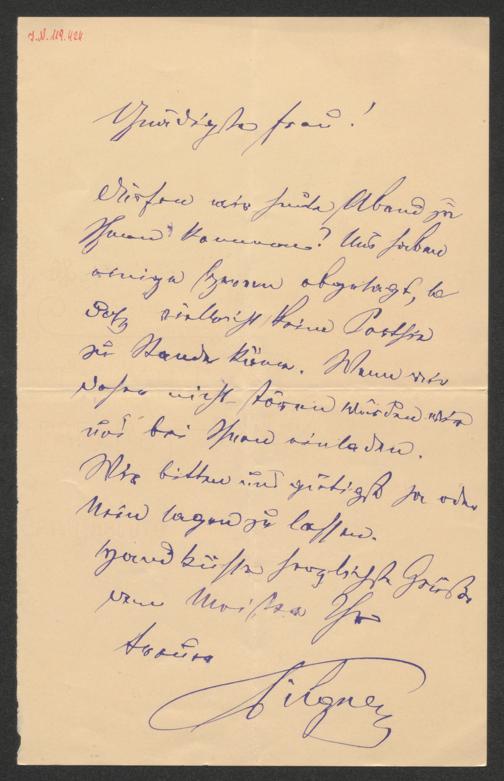 J.N. 119.424
Gnädigste Frau!
Dürfen wir heute Abend zu
Ihnen kommen? Uns haben
einige Herren abgesagt, so
daß vielleicht keine Parthie
zu Stande käme. Wenn wir
daher nicht stören würden wir
uns bei Ihnen einladen.
Wir bitten uns gütigst ja oder
nein sagen zu lassen.
Handküsse herzlichste Grüße
dem Meister Ihr
treuer
Tilgner